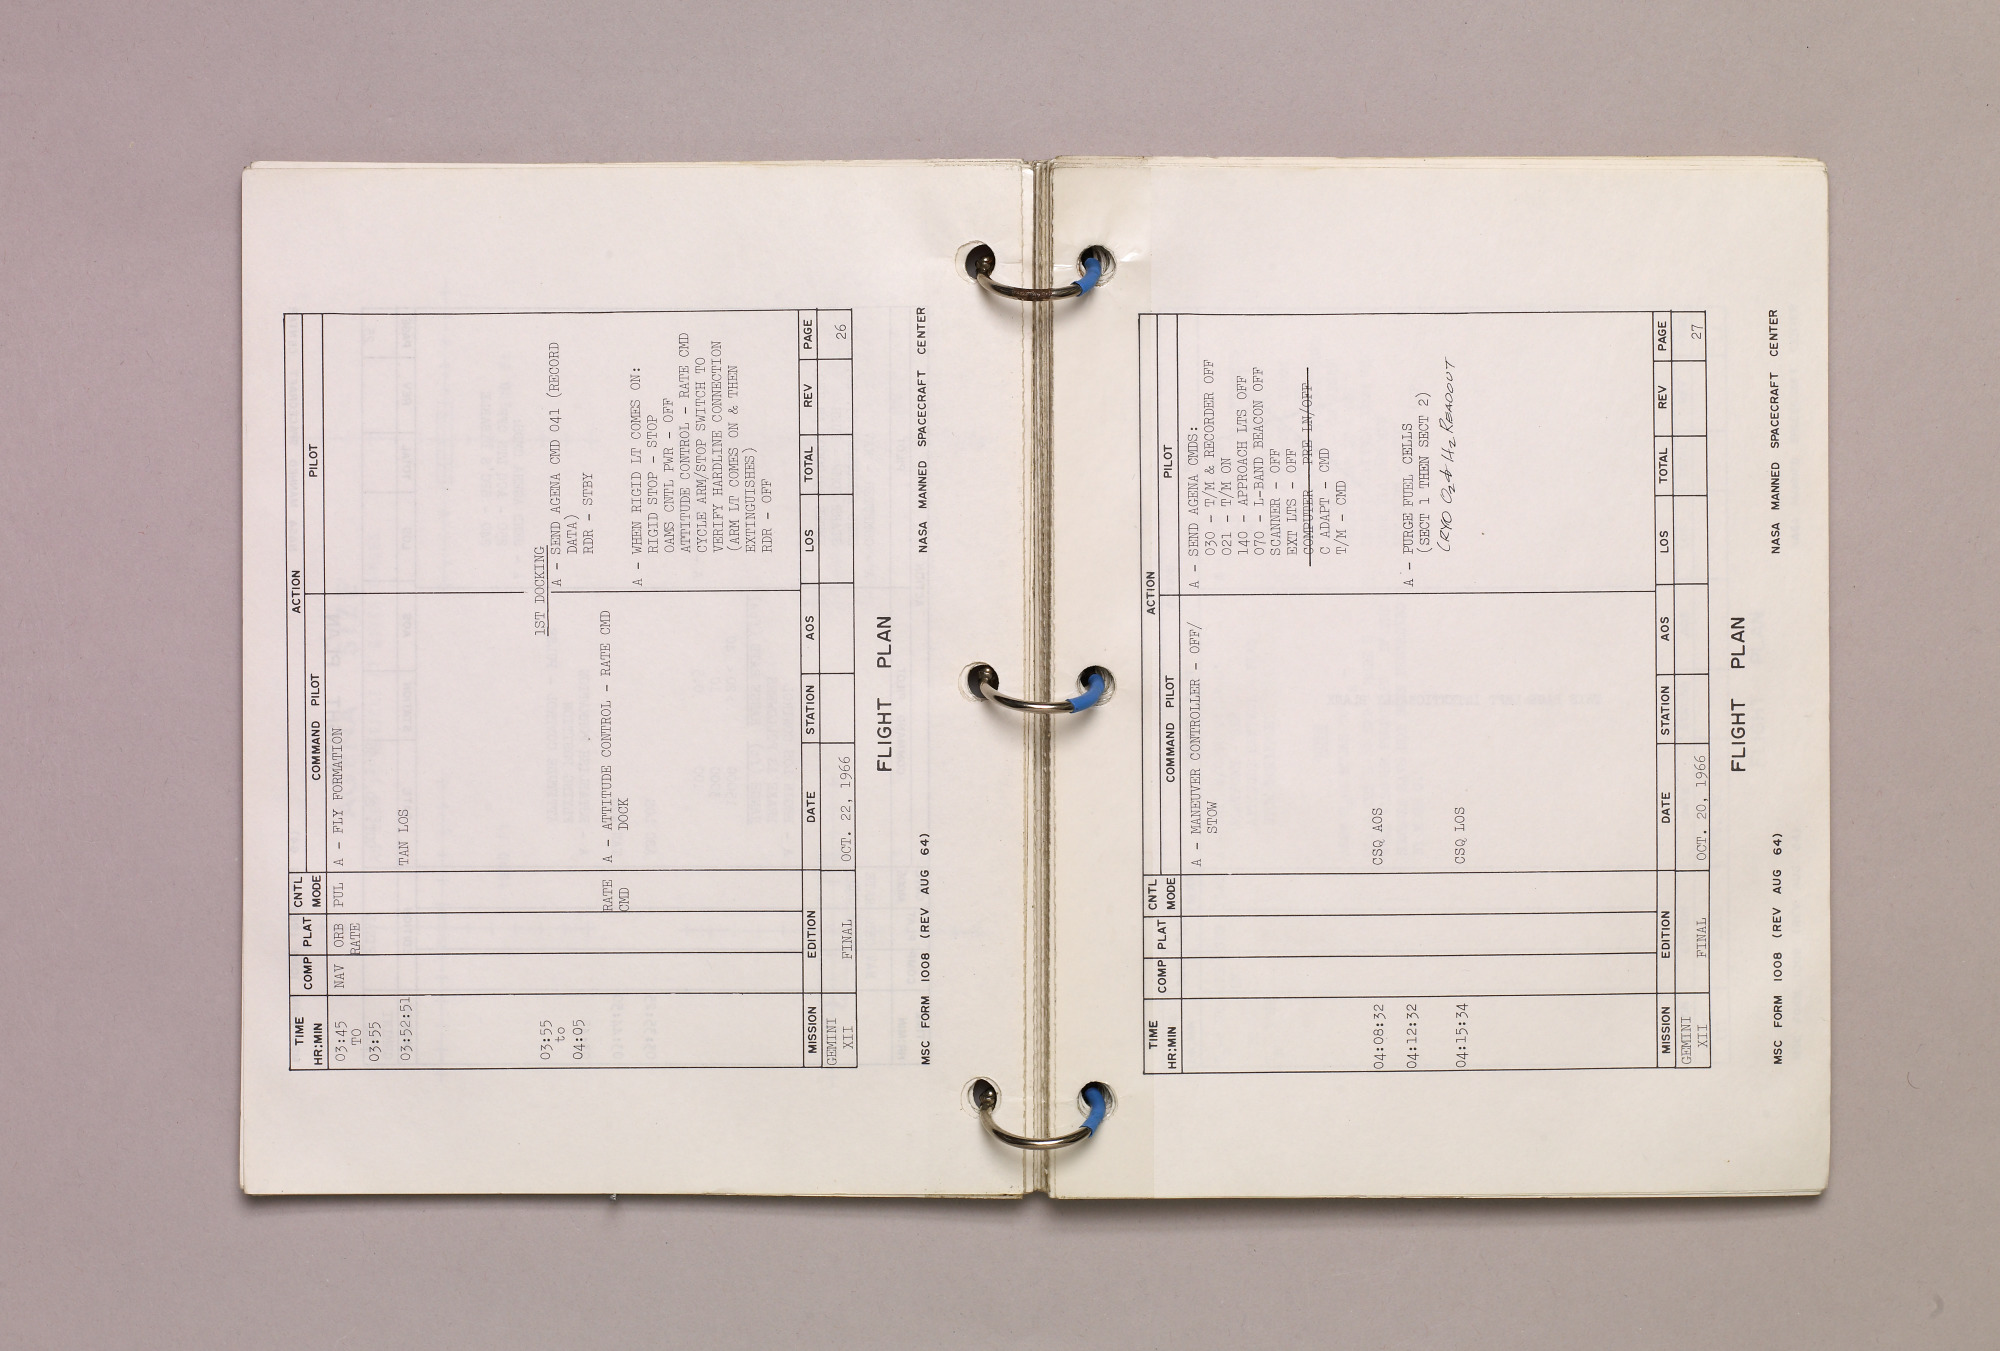 TIME
HR:MIN
COMP
PLAT
CNTL
MODE
ACTION
COMMAND PILOT
PILOT
03:45
TO
03:55
NAV
ORB
RATE
PUL
A - FLY FORMATION
03:52:51
TAN LOS
1ST DOCKING
03:55
to
04:05
A - SEND AGENA CMD 041 (RECORD
DATA)
RDR - STBY
RATE
CMD
A - ATTITUDE CONTROL - RATE CMD
DOCK
A - WHEN RIGID LT COMES ON:
RIGID STOP - STOP
OAMS CNTL PWR - OFF
ATTITUDE CONTROL - RATE CMD
CYCLE ARM/STOP SWITCH TO
VERIFY HARDLINE CONNECTION
(ARM LT COMES ON & THEN
EXTINGUISHES)
RDR - OFF
MISSION
EDITION
DATE
STATION
AOS
LOS
TOTAL
REV
PAGE
GEMINI
XII
FINAL
OCT. 22, 1966
26
FLIGHT PLAN
MSC FORM 1008 (REV AUG 64)
NASA MANNED SPACECRAFT CENTER
TIME
HR:MIN
COMP
PLAT
CNTL
MODE
ACTION
COMMAND PILOT
PILOT
A - MANEUVER CONTROLLER - OFF/
STOW
A - SEND AGENA CMDS:
030 - T/M & RECORDER OFF
021 - T/M ON
140 - APPROACH LTS OFF
070 - L-BAND BEACON OFF
SCANNER - OFF
EXT LTS - OFF
COMPUTER - PRE LN/OFF
C ADAPT - CMD
T/M - CMD
04:08:32
CSQ AOS
04:12:32
A - PURGE FUEL CELLS
(SECT 1 THEN SECT 2)
CRYO O2 & H2 READOUT
04:15:34
CSQ LOS
MISSION
EDITION
DATE
STATION
AOS
LOS
TOTAL
REV
PAGE
GEMINI
XII
FINAL
OCT. 20, 1966
27
FLIGHT PLAN
MSC FORM 1008 (REV AUG 64)
NASA MANNED SPACECRAFT CENTER